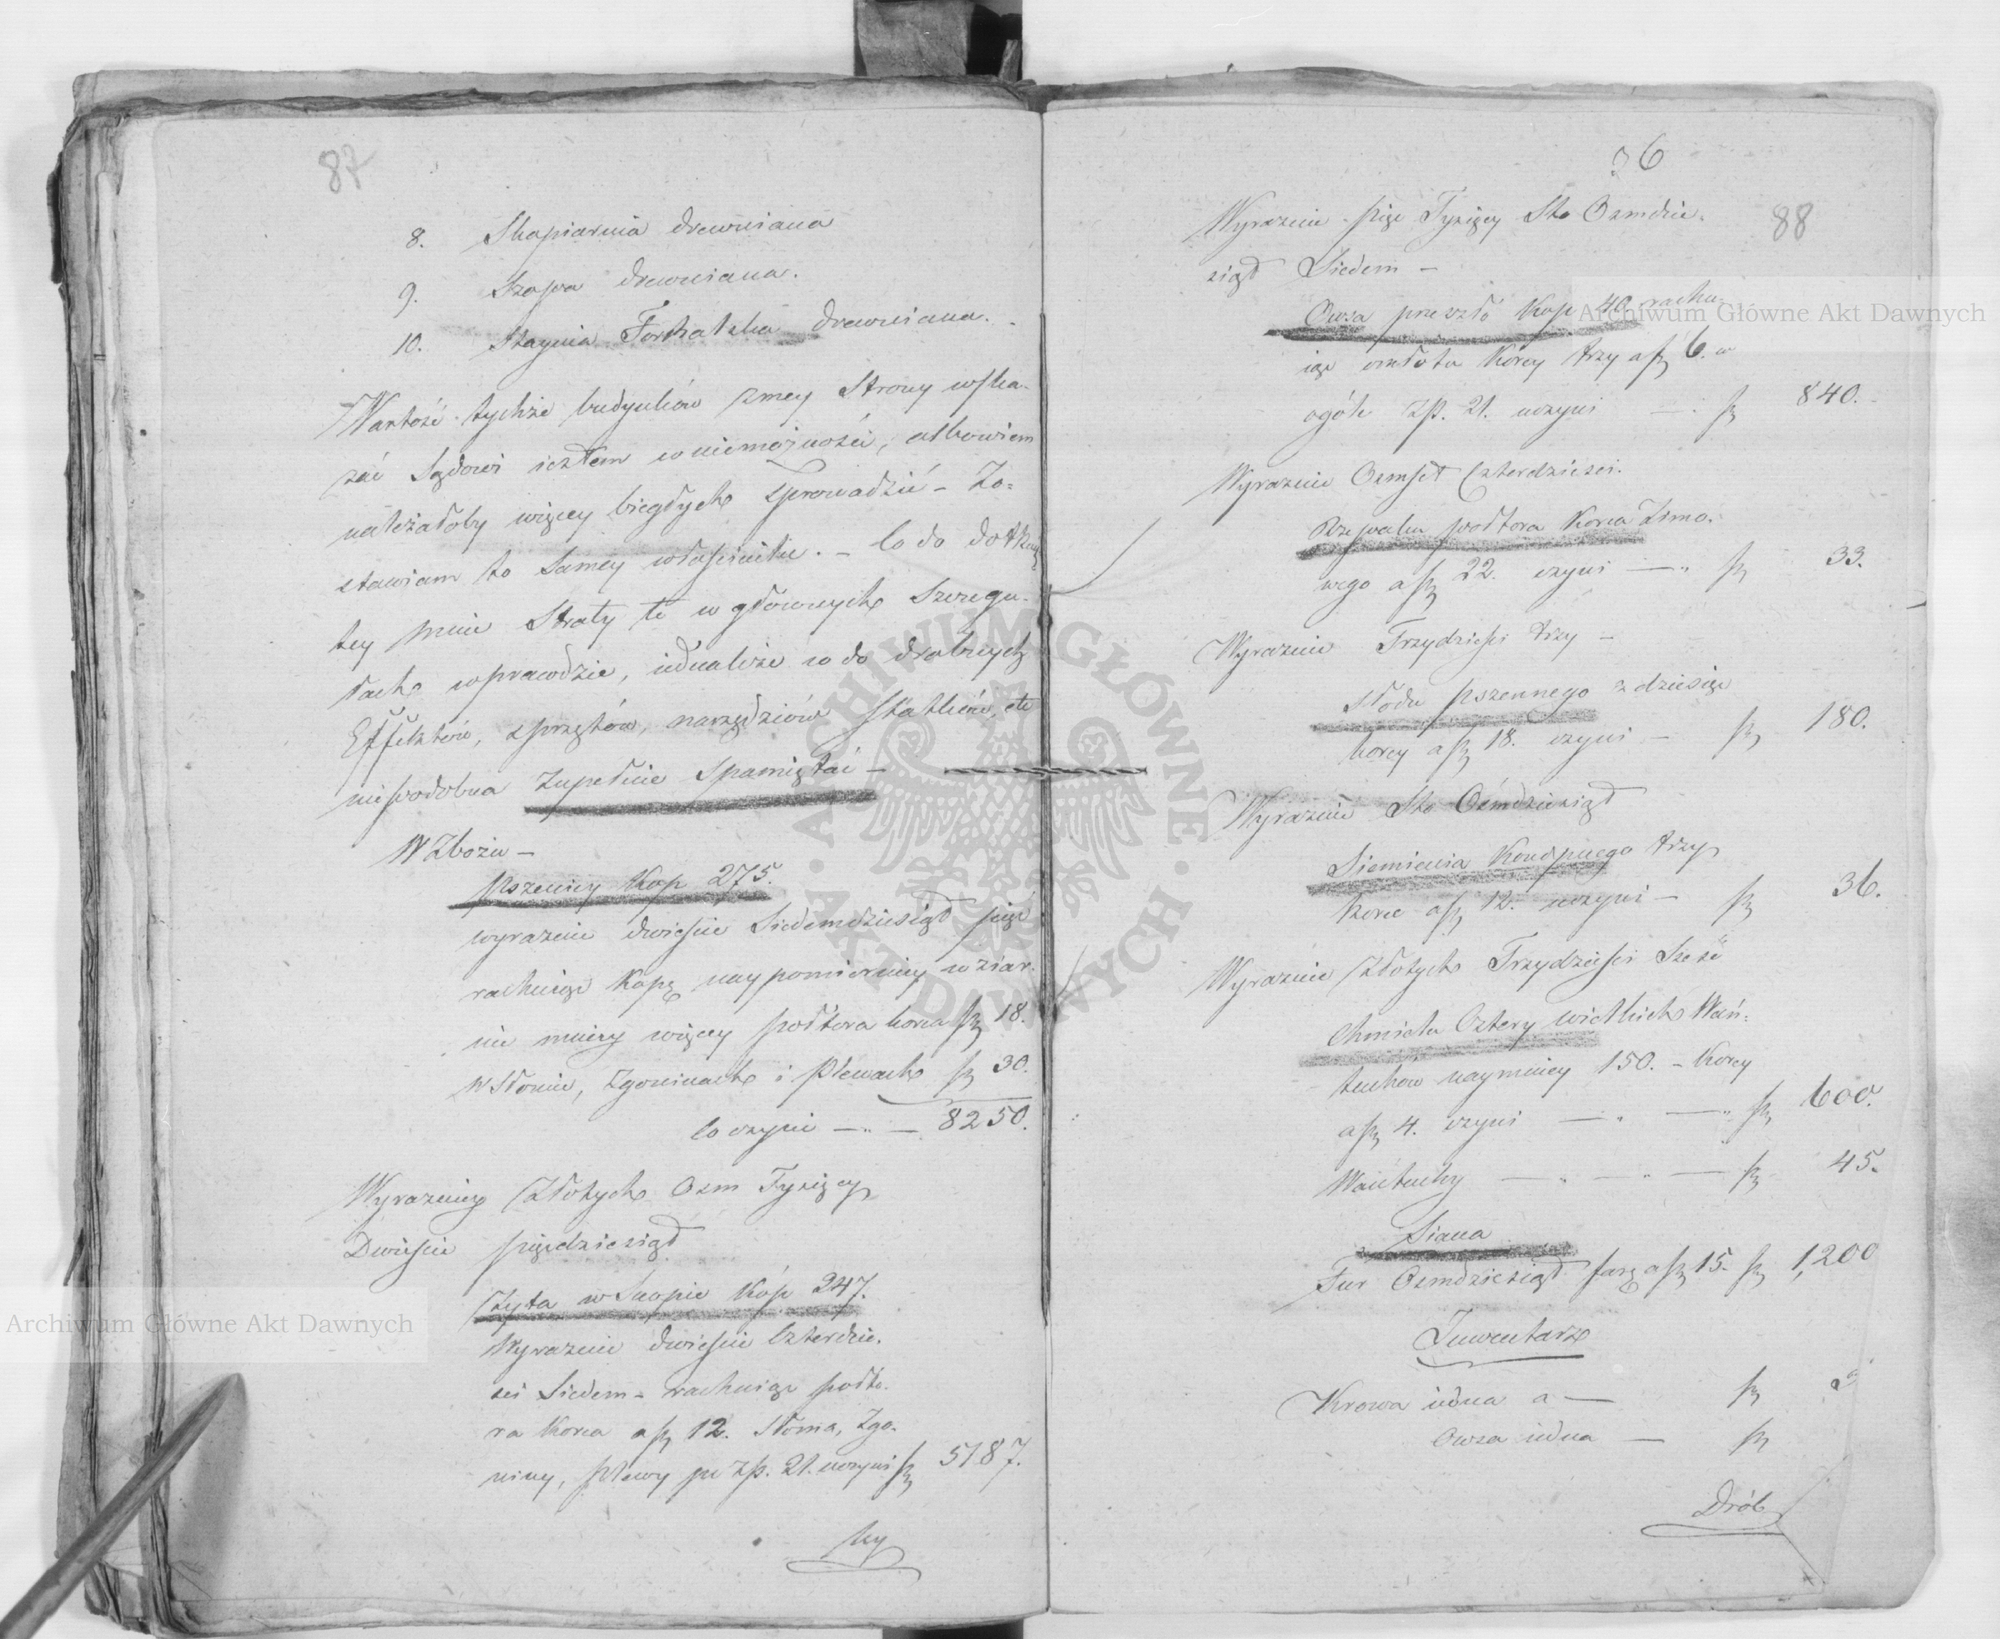 87
8. Skopiarnia drewniana
9. Szopa drewniana.
10. Staynia Forhatzka drewniana.
Wartość tychże budynków z mey Strony wska-
zać Sądowi iestem w niemożności, albowiem
należałoby więcey biegłych sprowadzić – Zo=
stawiam to Samey właścicielce. – Co do dotkną
tey mnie Straty te w głównych Szczegu-
łach wprawdzie, iednakże co do drobnych
Effektów, sprzętów, narzędziów statków, etc
niepodobna zupełnie Spamiętać –
W Zbożu –
Pszenicy Kop 275.
wyraznie dwieście Siedemdziesiąt pięć
rachuiąc Kopę naypomierniey w ziar-
nie mniey więcey półtora korca fp 18.
w Słomie, Zgoninach i Plewach fp 30.
Co czyni – „ – 8250.
Wyrazniey Złotych Osm Tysięcy
Dwieście pięćdziesiąt
Żyta w Snopie Kóp 247.
Wyraznie dwieście Czterdzie-
ści Siedem – rachuiąc półto-
ra Korca a fp 12. Słoma, Zgo-
niny, plewy po Zp. 21. uczyni fp 5187.
Wy
36
88
Wyraznie pięć Tysięcy Sto Osmdzie-
siąt Siedem –
Owsa przeszło Kop 40 rachu-
iąc omłotu Korcy trzy a fp 6. w
ogóle Zp. 21. uczyni — fp 840.
Wyraznie Osmset Czterdzieści.
Rzepaku półtora Korca Zimo-
wego a fp 22. czyni — „ fp 33.
Wyraznie Trzydzieści trzy –
Słodu pszennego z dziesięć
korcy a fp 18. czyni – fp 180.
Wyraznie Sto Ośmdziesiąt
Siemienia Konopnego trzy
korce a fp 12. uczyni – fp 36.
Wyraznie Złotych Trzydzieści Sześć
Chmielu Cztery wielkich Wań-
tuchow naymniey 150. – Korcy
a fp 4. czyni — „ — „ fp 600.
Wańtuchy — „ — „ — fp 45.
Siana
Fur Osmdziesiąt furę a fp 15. fp 1,200
Inwentarz
Krowa iedna a — fp
Owca iedna — fp
Drób
Archiwum Główne Akt Dawnych
Archiwum Główne Akt Dawnych
ARCHIWUM GŁÓWNE AKT DAWNYCH